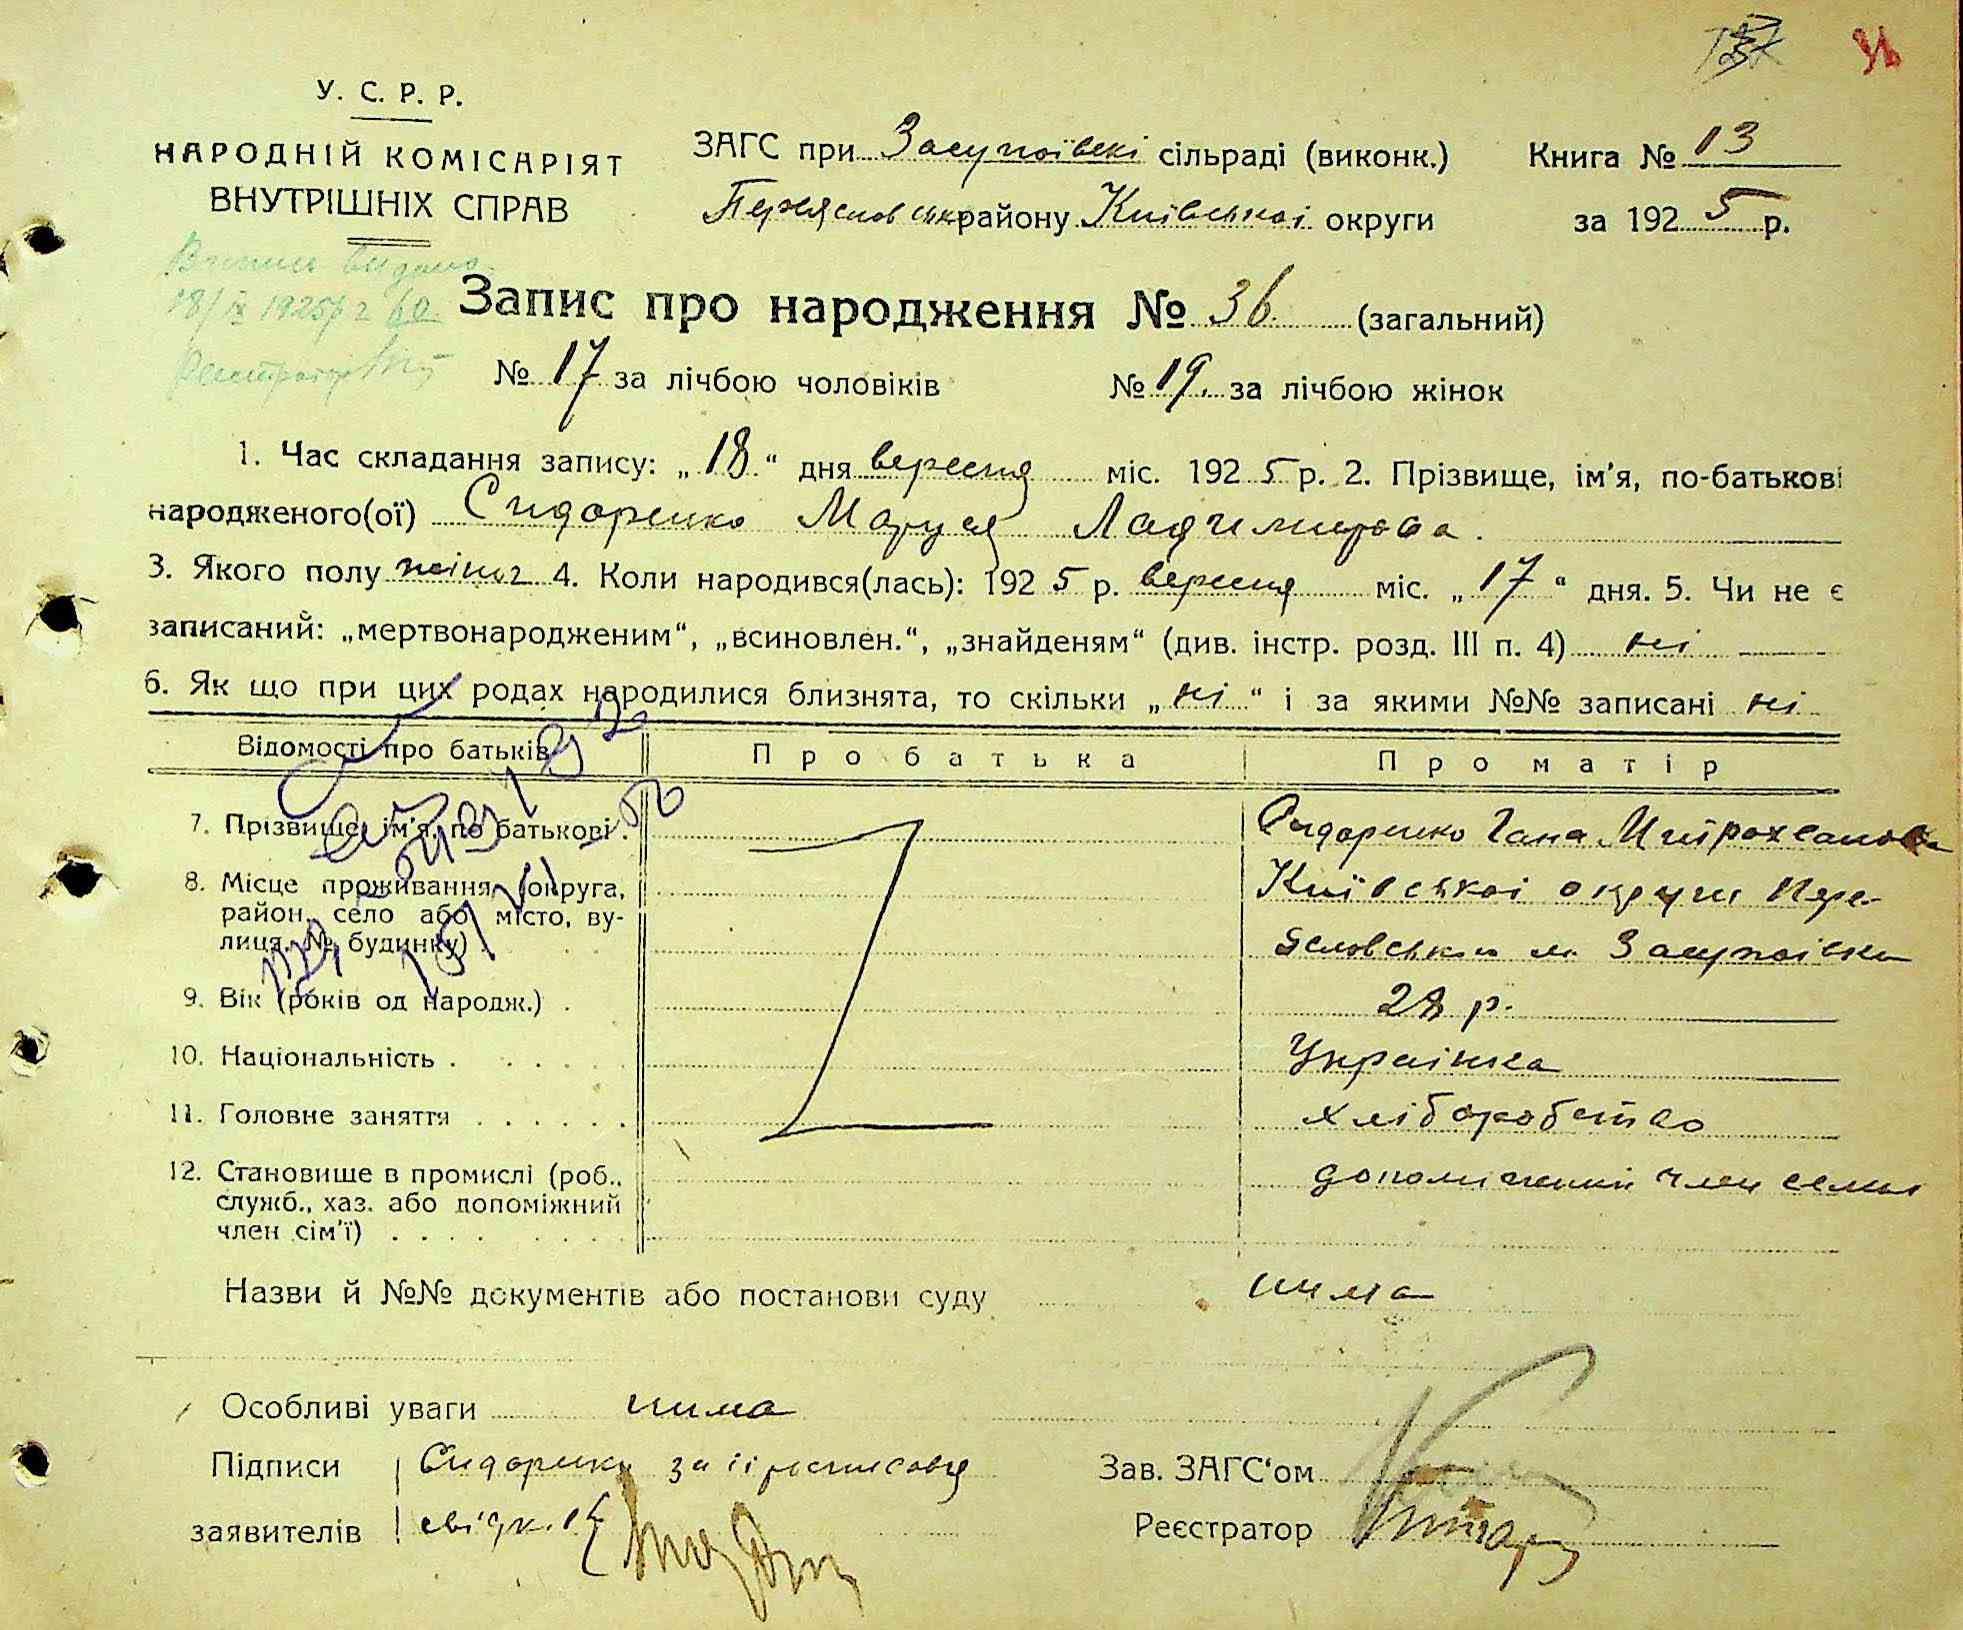 У. С. Р. Р.
НАРОДНІЙ КОМІСАРІЯТ
ВНУТРІШНІХ СПРАВ
ЗАГС при Засупоївскі сільраді (виконк.) Книга № 13
Переяславськ району Київської округи за 1925 р.
Випис видано
18/IX 1925 р
Реєстратор
Запис про народження № 36. (загальний)
№ 17 за лічбою чоловіків № 19. за лічбою жінок
1. Час складання запису: „18“ дня вересня міс. 1925 р. 2. Прізвище, ім'я, по-батькові
народженого(ої) Сидоренко Маруся Ладимирова.
3. Якого полу жіноч 4. Коли народився(лась): 1925 р. вересня міс. „17“ дня. 5. Чи не є
записаний: „мертвонародженим“, „всиновлен.“, „знайденям“ (див. інстр. розд. III п. 4) ні
6. Як що при цих родах народилися близнята, то скільки „ні“ і за якими №№ записані ні
Відомості про батьків Про батька Про матір
7. Прізвище, ім'я, по батькові. Сидоренко Гана Митрохванова
8. Місце проживання (округа, Київської округи Пере-
район, село або місто, ву- яславський Засупоївки
лиця, № будинку)
9. Вік (років од народж.) 28 р.
10. Національність Українка
11. Головне заняття хліборобство
12. Становище в промислі (роб., член семьі
служб., хаз. або допоміжний
член сім'ї)
Назви й №№ документів або постанови суду нима
Особливі уваги нима
Підписи Сидоренко за її росписовся Зав. ЗАГС'ом
заявителів Реєстратор